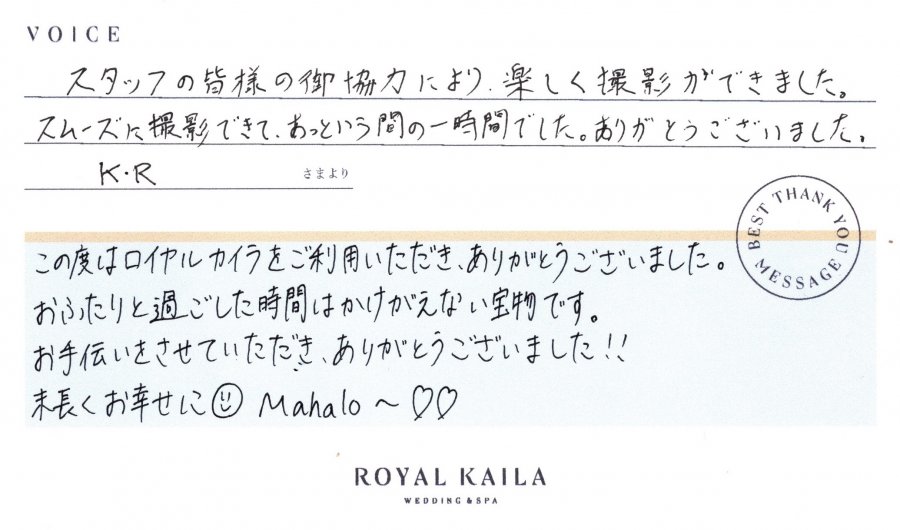 VOICE
スタッフの皆様の御協力により、楽しく撮影ができました。
スムーズに撮影できて、あっという間の一時間でした。ありがとうございました。
K.R さまより
BEST THANK YOU MESSAGE
この度はロイヤルカイラをご利用いただき、ありがとうございました。
おふたりと過ごした時間はかけがえない宝物です。
お手伝いをさせていただき、ありがとうございました!!
末長くお幸せに☺ Mahalo〜♡♡
ROYAL KAILA
WEDDING & SPA